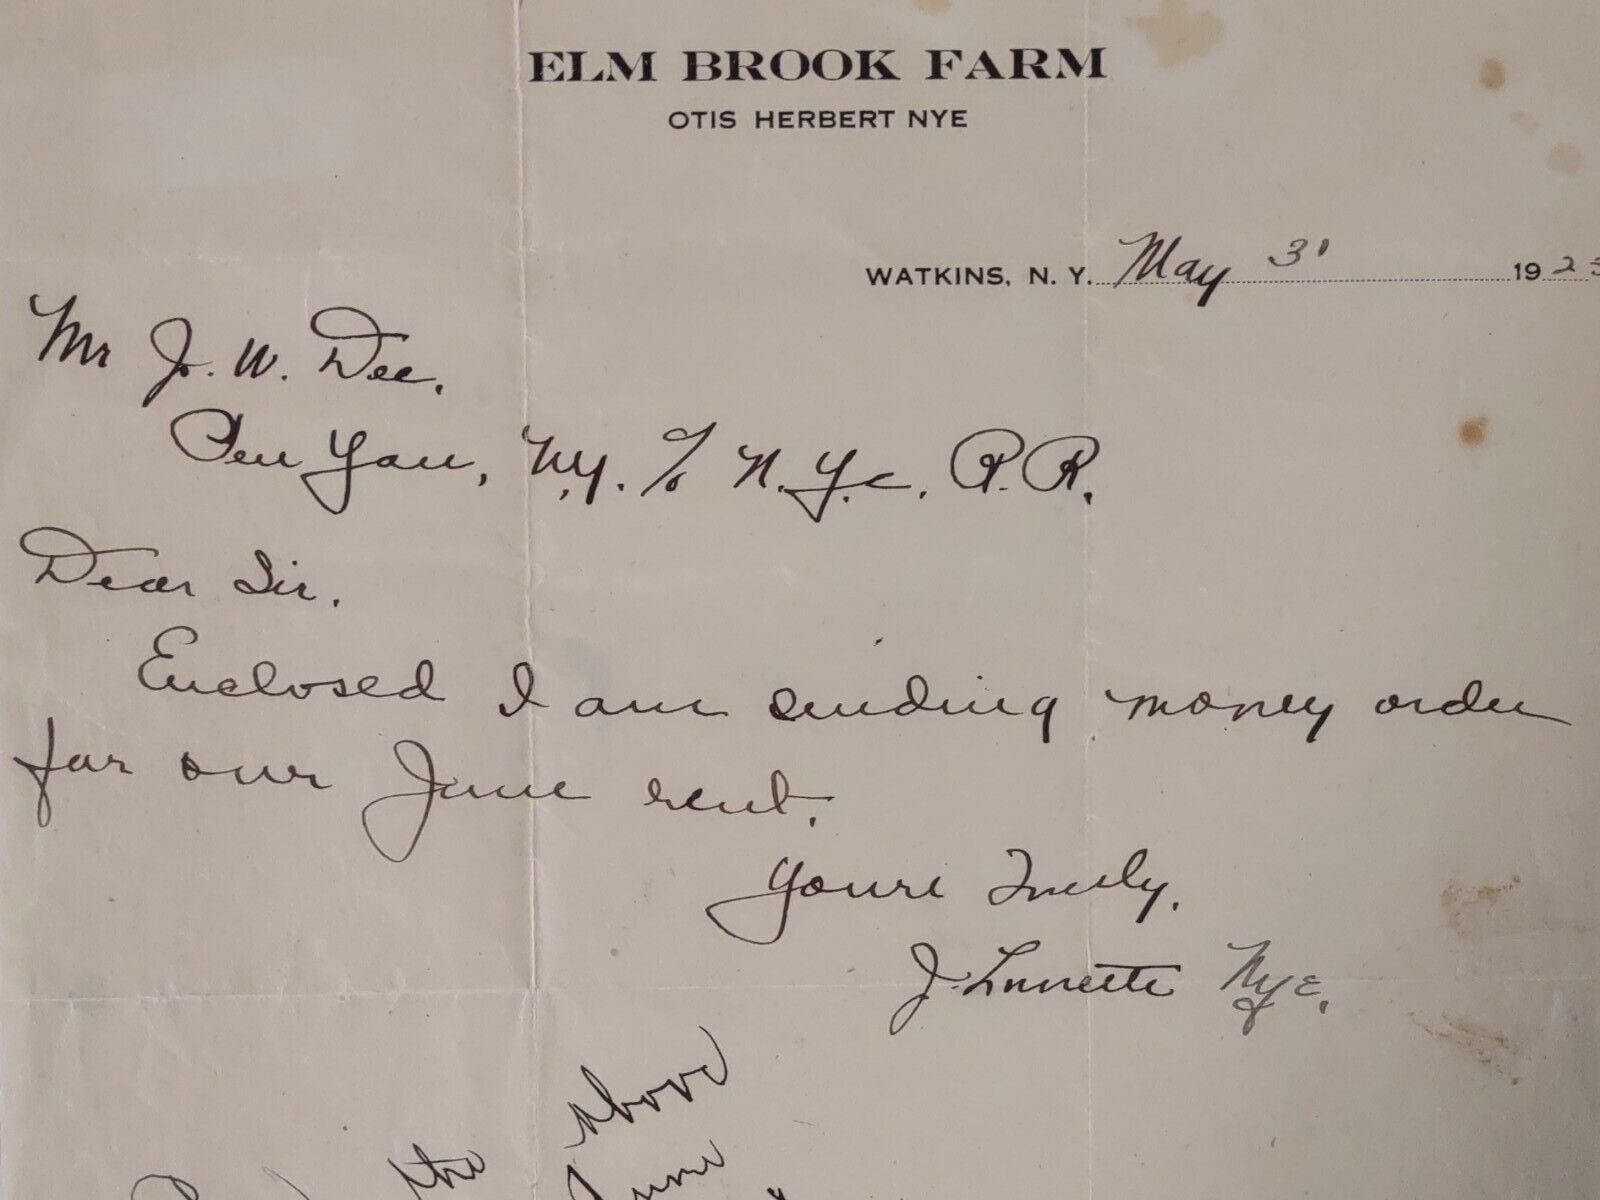 ELM BROOK FARM
OTIS HERBERT NYE
WATKINS, N. Y. May 31 192
Mr J. W. Dee.
Pen Yan, N.Y. % N.Y.C. R.R.
Dear Sir.
Enclosed I am sending money order
for our June rent.
Yours Truly,
J. Lunette Nye.
the above
June